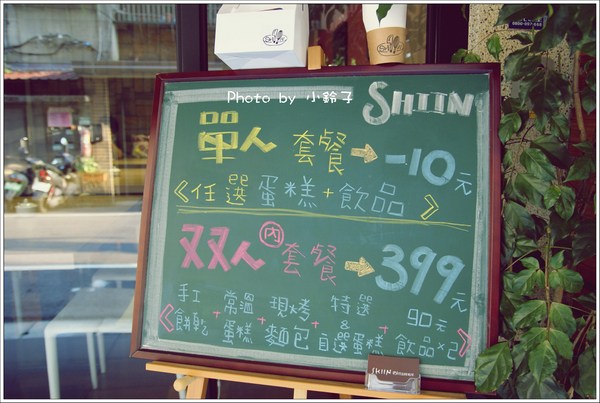 Photo by 小鈴子
SHIIN
單人 套餐 → -10元
<任選蛋糕+飲品>
双双人 內 套餐 → 399元
<手工餅乾 + 常溫蛋糕 + 現烤麵包 + 特選&自選蛋糕 + 90元飲品×2>
SHIIN